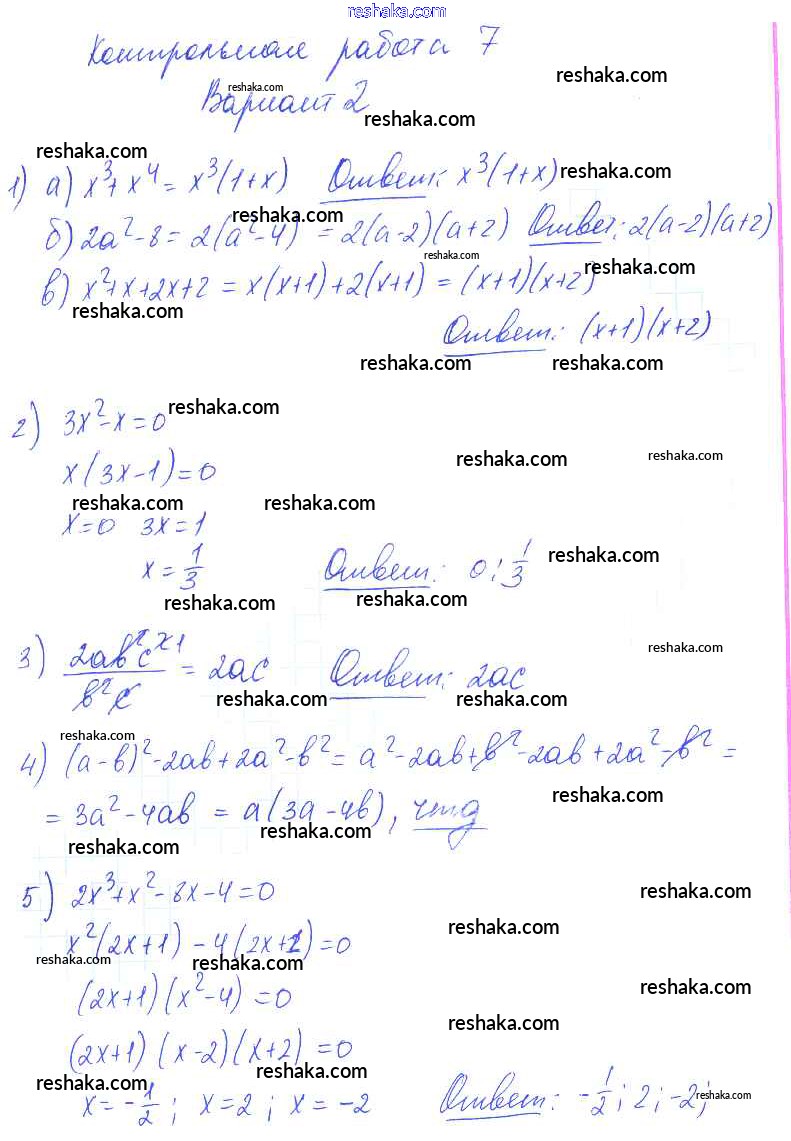 reshaka.com
Контрольная работа 7
reshaka.com
reshaka.com
Вариант 2
reshaka.com
reshaka.com
1) а) x³+x⁴ = x³(1+x) Ответ: x³(1+x)
reshaka.com
reshaka.com
б) 2a²-8 = 2(a²-4) = 2(a-2)(a+2) Ответ: 2(a-2)(a+2)
reshaka.com
reshaka.com
в) x²+x+2x+2 = x(x+1)+2(x+1) = (x+1)(x+2)
reshaka.com
Ответ: (x+1)(x+2)
reshaka.com reshaka.com
reshaka.com
2) 3x²-x=0
reshaka.com reshaka.com
x(3x-1)=0
reshaka.com reshaka.com
x=0 3x=1
reshaka.com
x=1/3 Ответ: 0; 1/3
reshaka.com reshaka.com
reshaka.com
3) 2ab²c²/b²c = 2ac Ответ: 2ac
reshaka.com reshaka.com
reshaka.com
4) (a-b)²-2ab+2a²-b² = a²-2ab+b²-2ab+2a²-b² =
reshaka.com
= 3a²-4ab = a(3a-4b), чтд
reshaka.com
reshaka.com
5) 2x³+x²-8x-4=0
reshaka.com
reshaka.com
x²(2x+1)-4(2x+1)=0
reshaka.com reshaka.com
(2x+1)(x²-4)=0
reshaka.com
reshaka.com
(2x+1)(x-2)(x+2)=0
reshaka.com reshaka.com
x=-1/2; x=2; x=-2 Ответ: -1/2; 2; -2;
reshaka.com